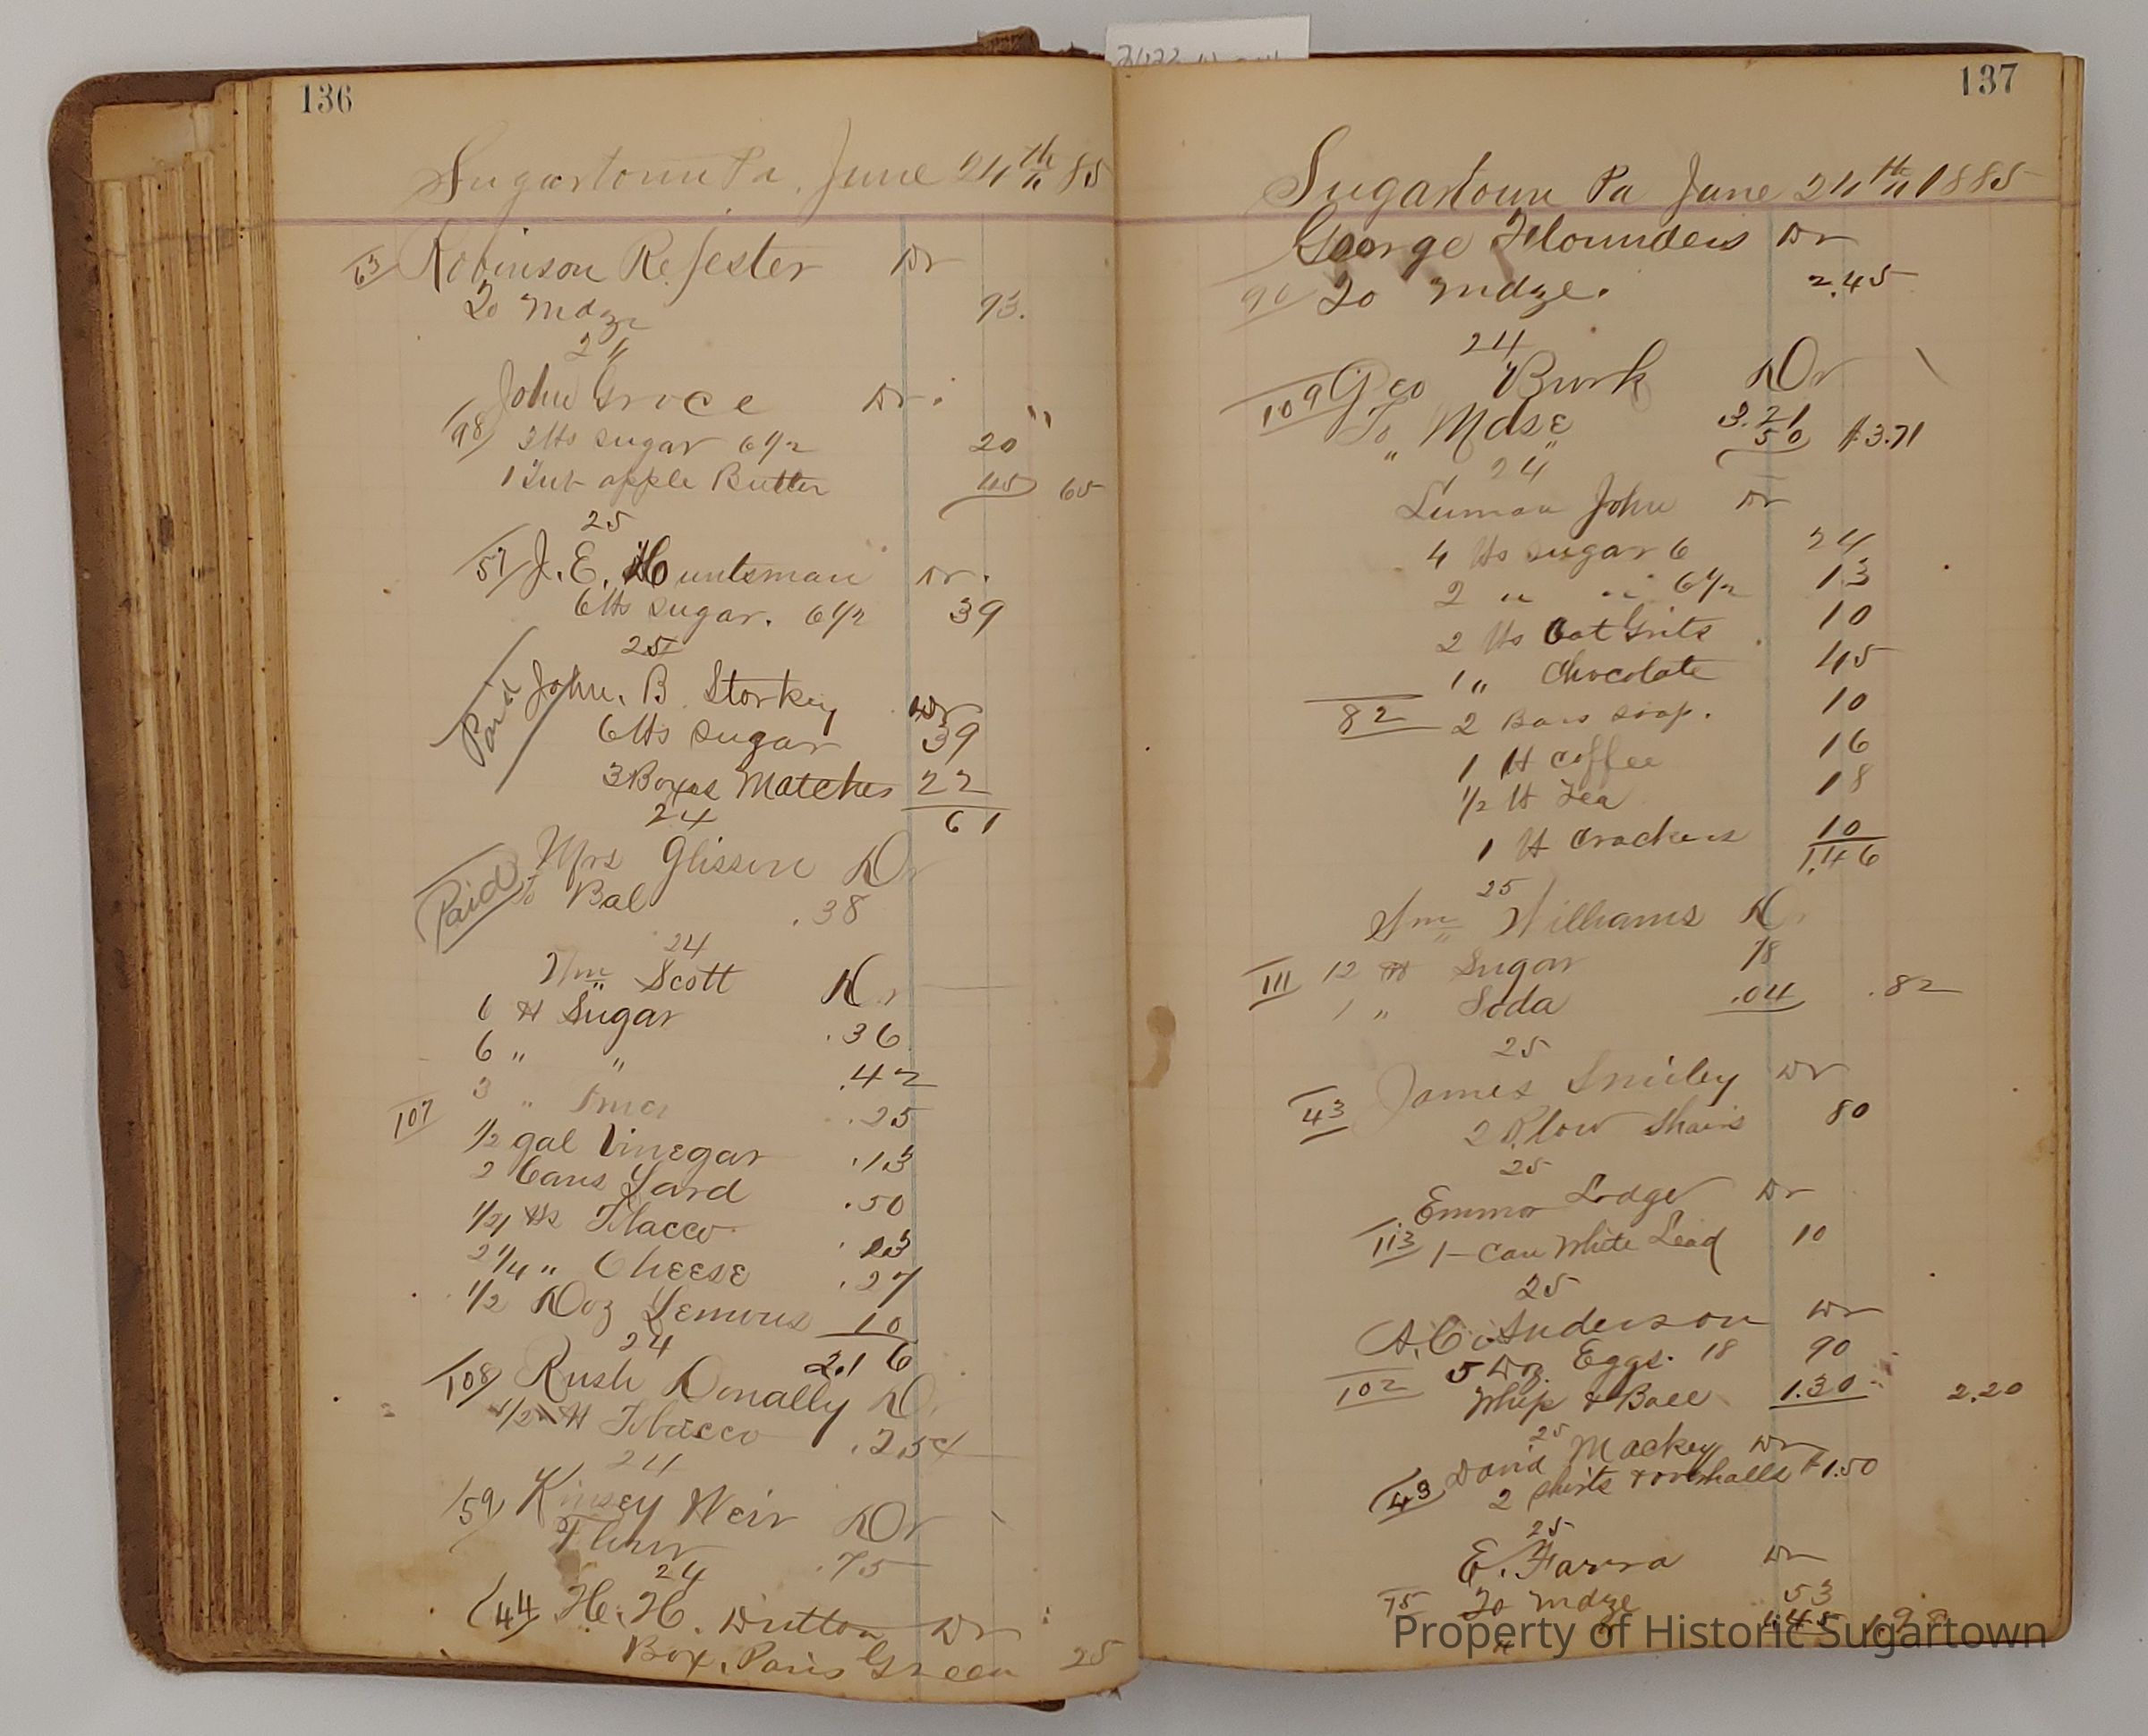 136
Sugartown Pa. June 24th 85
63 Robinson Dr
To Mdze 93.
24
John Groce Dr.
98 3 lbs sugar 6 1/2 20
1 Tub apple Butter 45 65
25
57 J. E. Huntsman Dr.
6 lbs sugar. 6 1/2 39
25
Paid John. B. Storkey Dr
6 lbs sugar 39
3 Boxes Matches 22
24 61
Mrs Dr
Paid To Bal .38
24
Wm Scott Dr
6 lb Sugar .36
6 " " .42
3 " .25
107
1/2 gal Vinegar .13
2 Cans Lard .50
1/4 lbs Tobacco .13
2 1/4 " Cheese .27
1/2 Doz Lemons 10
24 2.16
108 Rush Donally Dr
1/2 lb Tobacco .25
24
59 Kinsey Weir Dr
Flour .75
24
44 H. H. Dutton Dr
Box, Paris Green 25
137
Sugartown Pa June 24th 1885
George Flounders Dr
90 To mdze. 2.45
24
109 Geo Burk Dr
To Mdse 3.21
" " 50 $3.71
24
Luman John Dr
4 lbs sugar 6 24
2 " " 6 1/2 13
2 lbs Oat Grits 10
1 " Chocolate 45
82 2 Bars soap. 10
1 lb coffee 16
1/2 lb Tea 18
1 lb Crackers 10
1.46
25
Wm Williams Dr
111 12 lb Sugar 78
1 " Soda .04 .82
25
James Smiley Dr
43 2 Plow Shairs 80
25
Emma Lodge Dr
113 1 Can White Lead 10
25
A. C. Anderson Dr
5 Doz. Eggs. 18 90
102 Whip & Ball 1.30 2.20
25
David Mackey Dr
43 2 shirts & overhalls $1.50
25
E. Farra Dr
75 To mdze 53
" " 1.45 1.98
Property of Historic Sugartown